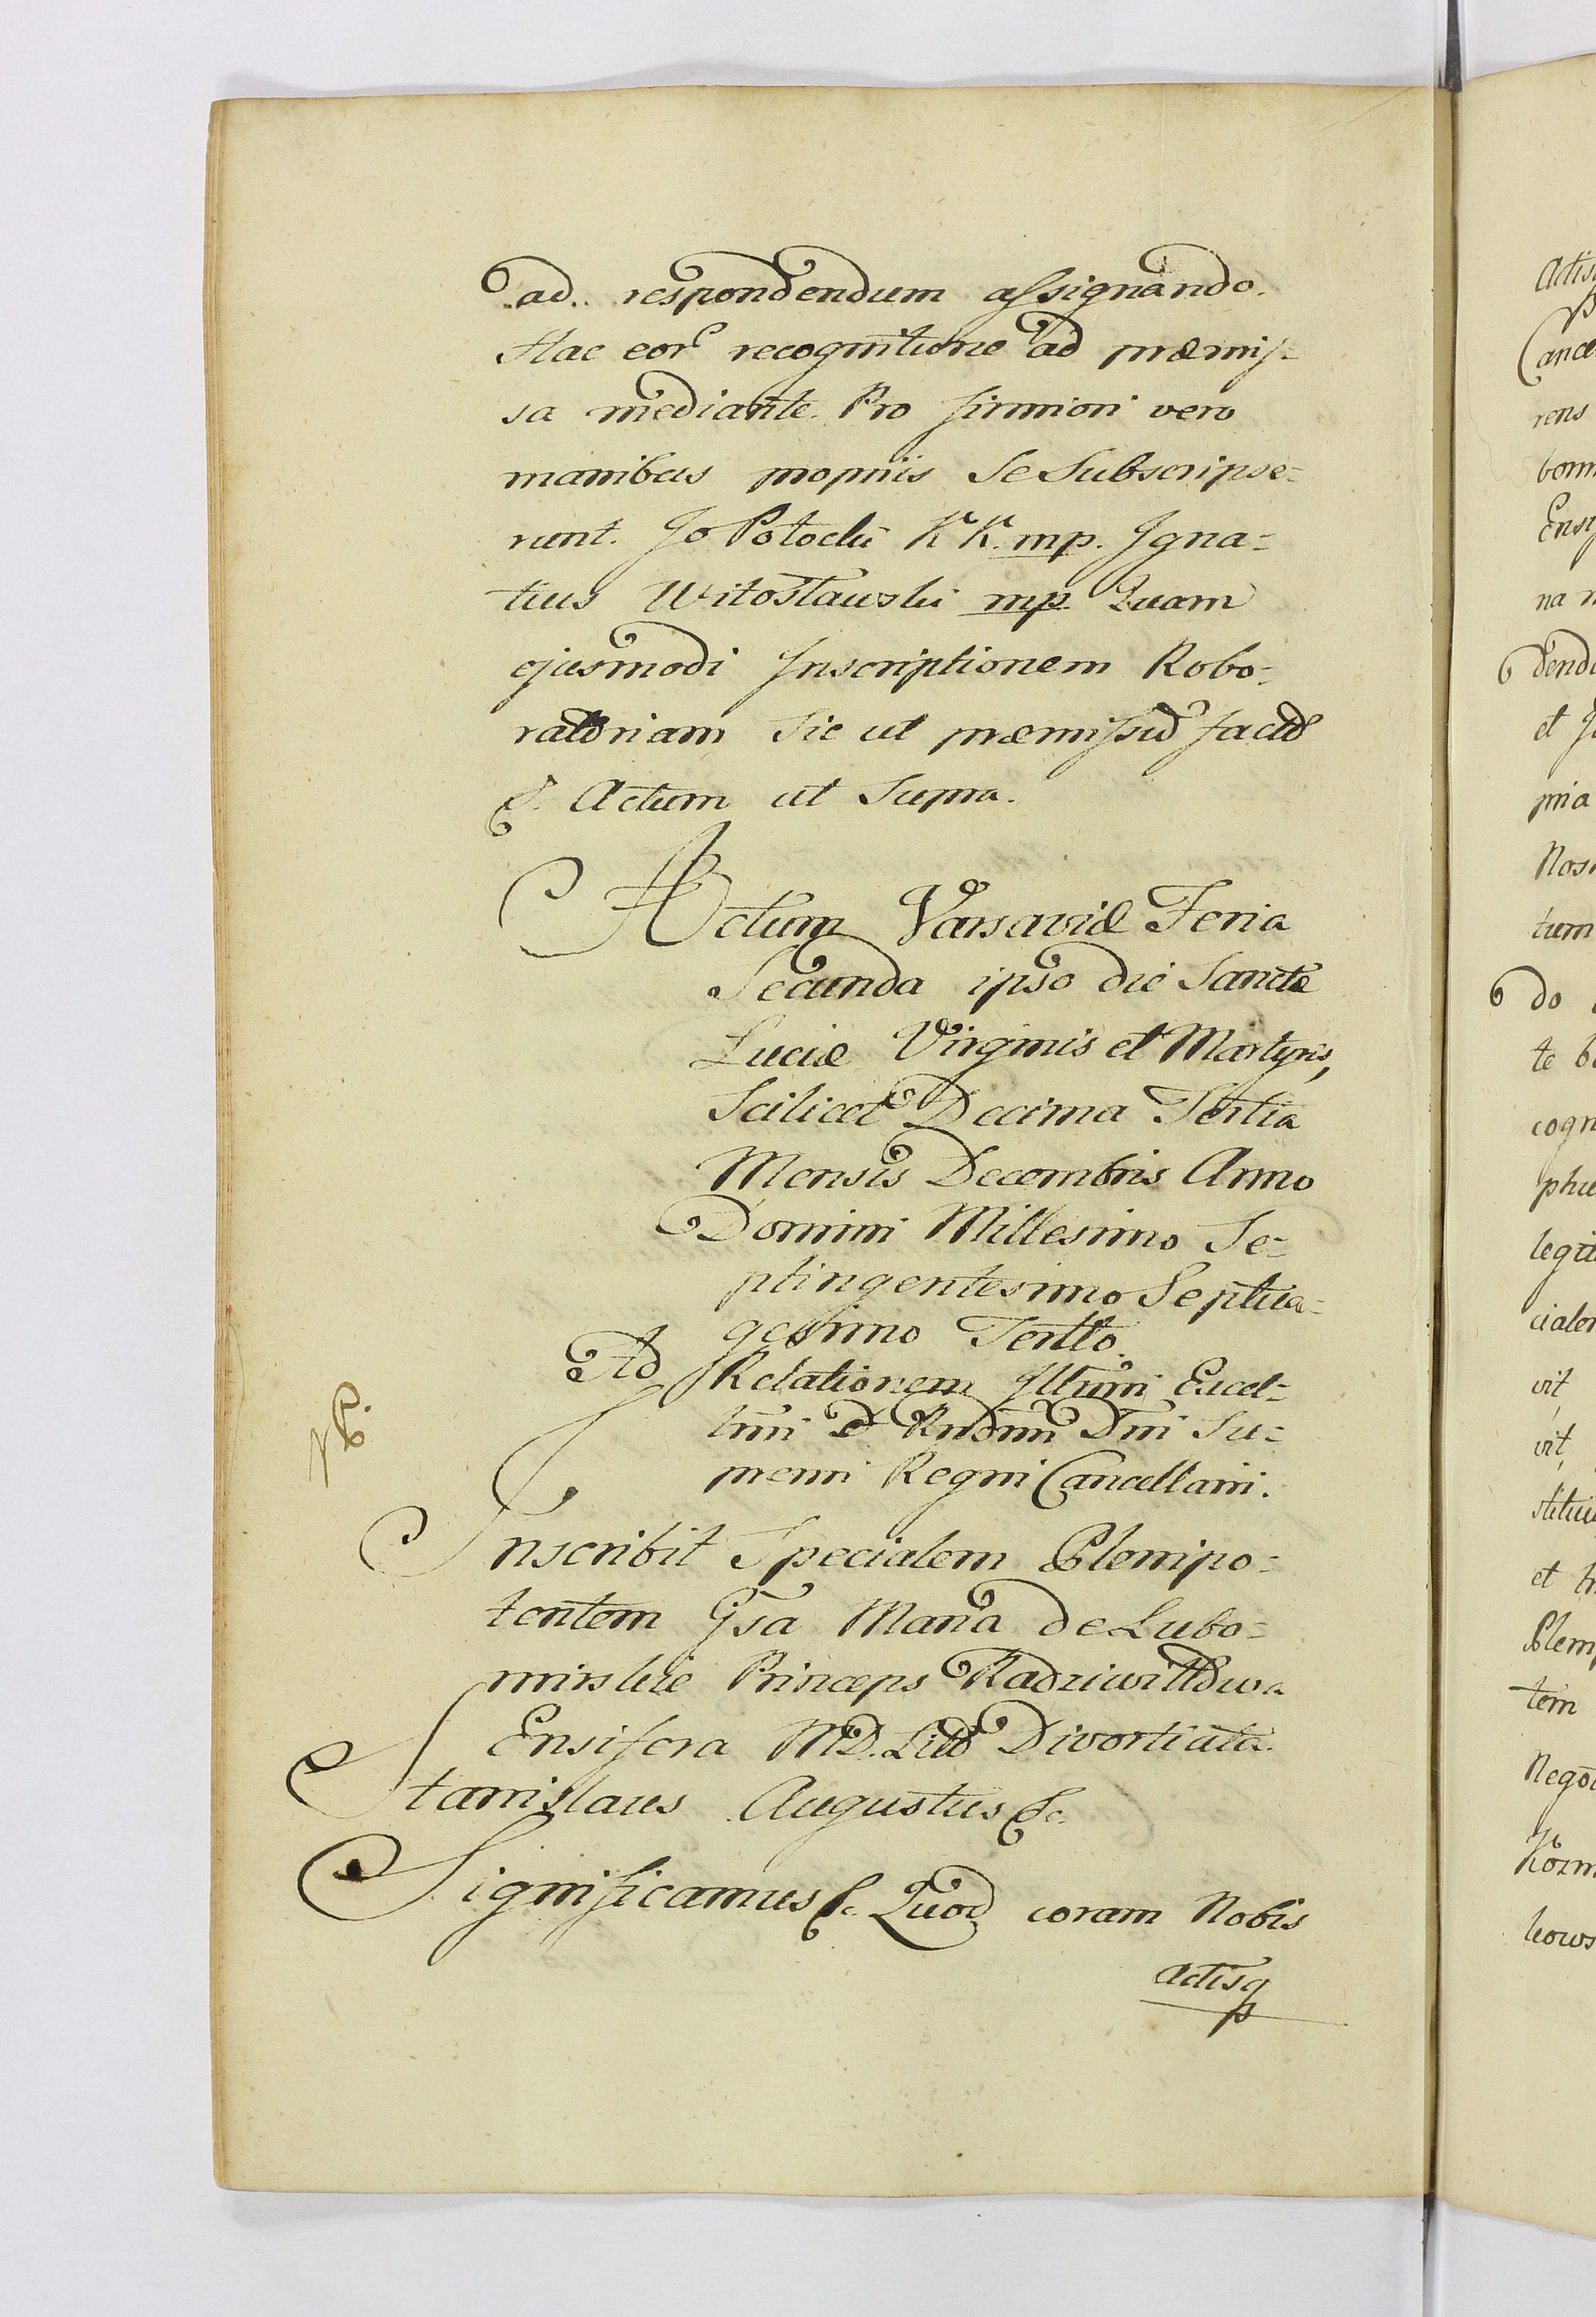 ad respondendum assignando.
Hac eor recognitione ad præmis-
sa mediante. Pro firmiori vero
manibus propriis se Subscripse-
runt. Jo Potocki K K. mp. Igna-
tius Witosławski mp. Quam
ejusmodi Inscriptionem Robo-
ratoriam Sic ut præmissũ factã
&. Actum ut Supra.
Actum Varsaviæ Feria
Secunda ipso die Sanctæ
Luciæ Virginis et Martyris,
Scilicet Decima Tertia
Mensis Decembris Anno
Domini Millesimo Se-
ptingentesimo Septua-
gesimo Tertio.
Ad Relationem Illũmi Excel-
lmi & Rndmi Dni Su-
premi Regni Cancellarii.
Inscribit Specialem Plenipo-
tentem Gsa Maria de Lubo-
mirskie Princeps Radziwiłłowa
Ensifera M.D. Litt Divortiata.
Stanislaus Augustus &c.
Significamus &c. Quod coram Nobis
actisq
Actis
Cance
rens
bonn
Ensi
na n
dend
et J
pria
Nos
tum
do
te b
cogn
phu
legit
cialem
vit,
vit,
stitui
et
Plem
tem
Nego
Kozm
kows